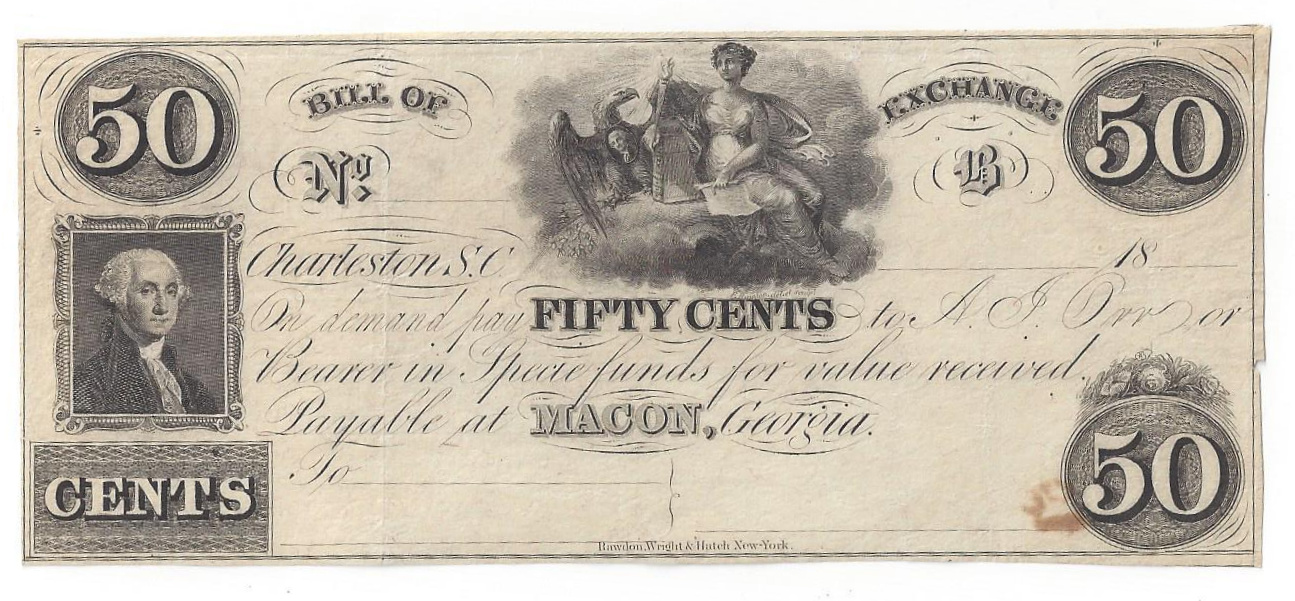 50 BILL OF EXCHANGE 50
No. B
Charleston, S.C. 18
On demand pay FIFTY CENTS to A. J. Orr or
Bearer in Specie funds for value received.
Payable at MACON, Georgia.
To
CENTS
50
Rawdon, Wright & Hatch New-York.